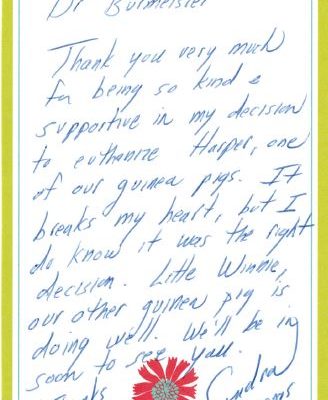 Dr Burmeister
Thank you very much
for being so kind &
supportive in my decision
to euthanize Harper, one
of our guinea pigs. It
breaks my heart, but I
do know it was the right
decision. Little Winnie,
our other guinea pig is
doing well. We'll be in
soon to see yall.
Thanks Sandra